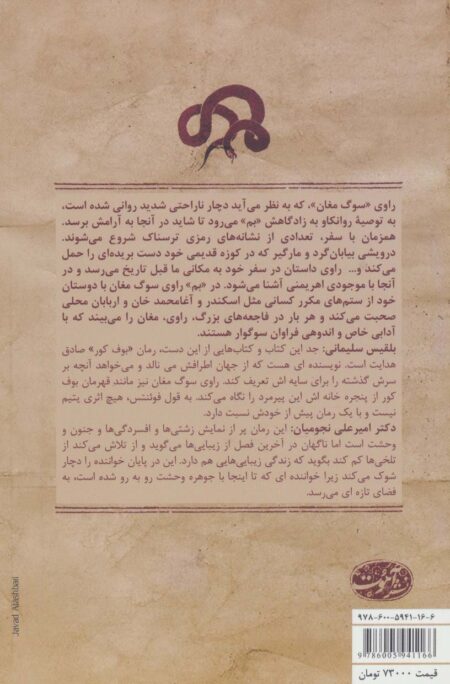 راوی «سوگ مغان»، که به نظر می‌آید دچار ناراحتی شدید روانی شده است،
به توصیهٔ روانکاو به زادگاهش «بم» می‌رود تا شاید در آنجا به آرامش برسد.
همزمان با سفر، تعدادی از نشانه‌های رمزی ترسناک شروع می‌شوند.
درویشی بیابان‌گرد و مارگیر که در کوزه قدیمی خود دست بریده‌ای را حمل
می‌کند و... راوی داستان در سفر خود به مکانی ما قبل تاریخ می‌رسد و در
آنجا با موجودی اهریمنی آشنا می‌شود. در «بم» راوی سوگ مغان با دوستان
خود از ستم‌های مکرر کسانی مثل اسکندر و آغامحمد خان و اربابان محلی
صحبت می‌کند و هر بار در فاجعه‌های بزرگ، راوی، مغان را می‌بیند که با
آدابی خاص و اندوهی فراوان سوگوار هستند.
بلقیس سلیمانی: جد این کتاب و کتاب‌هایی از این دست، رمان «بوف کور» صادق
هدایت است. نویسنده ای هست که از جهان اطرافش می نالد و می‌خواهد آنچه بر
سرش گذشته را برای سایه اش تعریف کند. راوی سوگ مغان نیز مانند قهرمان بوف
کور از پنجره خانه اش این پیرمرد را نگاه می‌کند. به قول فوئنتس، هیچ اثری یتیم
نیست و با یک رمان پیش از خودش نسبت دارد.
دکتر امیرعلی نجومیان: این رمان پر از نمایش زشتی‌ها و افسردگی‌ها و جنون و
وحشت است اما ناگهان در آخرین فصل از زیبایی‌ها می‌گوید و از تلاش می‌کند از
تلخی‌ها کم کند بگوید که زندگی زیبایی‌هایی هم دارد. این در پایان خواننده را دچار
شوک می‌کند زیرا خواننده ای که تا اینجا با جوهره وحشت رو به رو شده است، به
فضای تازه ای می‌رسد.
نشر آموت
Javad Atashbari
۹۷۸-۶۰۰-۵۹۴۱-۱۶-۶
9 786005 941166
قیمت ۷۳۰۰۰ تومان